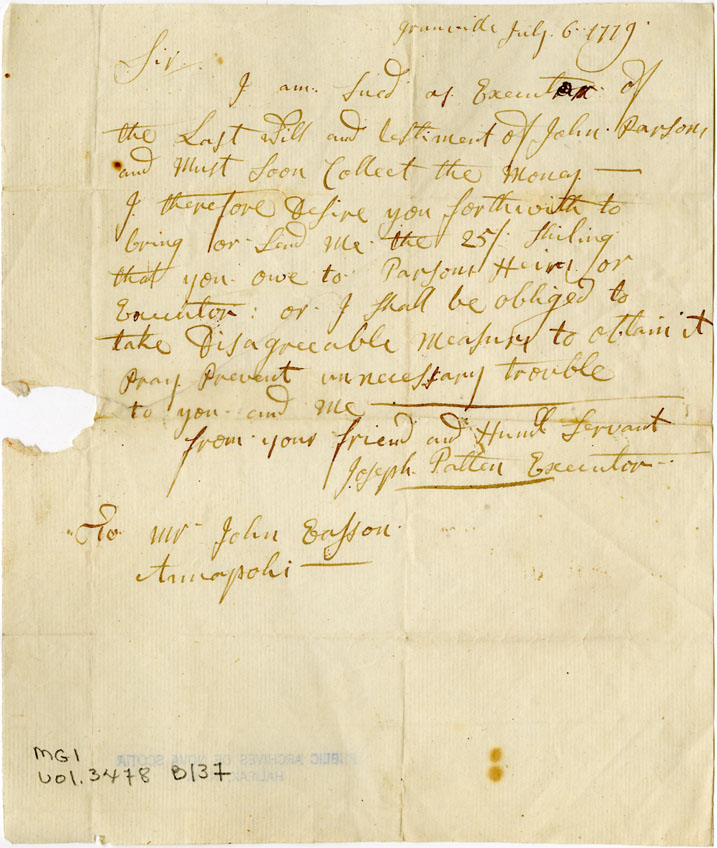 Granville July 6 1779
Sir
I am Sued as Executor of
the Last Will and testiment of John Parsons
and Must Soon Collect the Money —
I therefore Desire you forthwith to
bring or Send Me the 25/ Shiling
that you owe to Parsons Heirs or
Executor: or I Shall be obliged to
take Disagreeable Measures to obtain it
Pray Prevent unnecessary trouble
to you and Me
from your friend and Huml Servant
Joseph Patten Executor
To Mr John Easson
Annapolis
PUBLIC ARCHIVES OF NOVA SCOTIA
HALIFAX
MG1
Vol. 3478 B/37